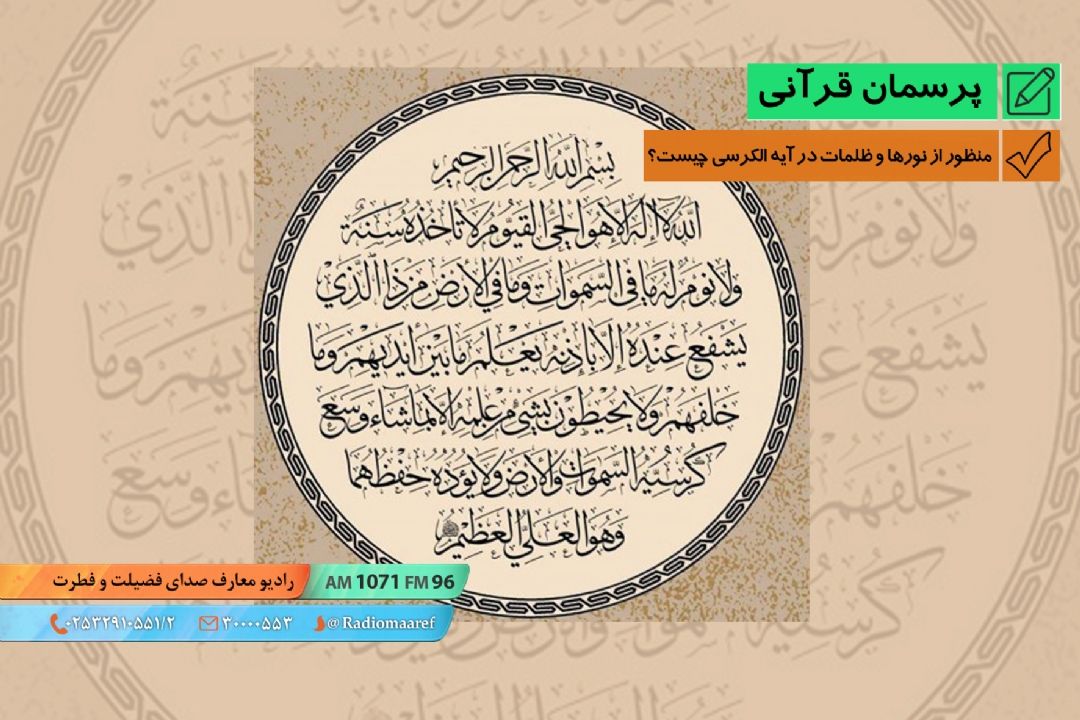 پرسمان قرآنی
منظور از نورها و ظلمات در آیه الکرسی چیست؟
بسم الله الرحمن الرحیم
الله لا إله إلا هو الحی القیوم لا تأخذه سنة
ولا نوم له ما فی السموات وما فی الأرض من ذا الذی
یشفع عنده إلا بإذنه یعلم ما بین أیدیهم وما
خلفهم ولا یحیطون بشیء من علمه إلا بما شاء وسع
کرسیه السموات والأرض ولا یؤوده حفظهما
وهو العلی العظیم
رادیو معارف صدای فضیلت و فطرت
AM 1071 FM 96
۰۲۵۳۲۹۱۰۵۵۱/۲ ۳۰۰۰۰۵۵۳ @Radiomaaref